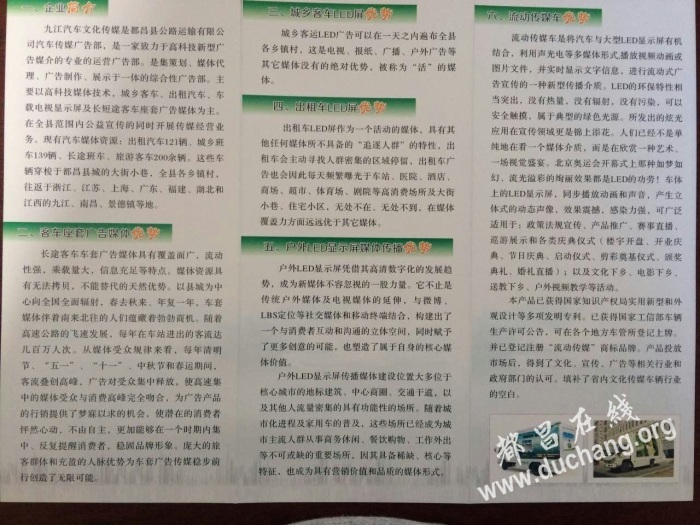 一、企业简介
九江汽车文化传媒是都昌县公路运输有限公
司汽车传媒广告部，是一家致力于高科技新型广
告媒介的专业的运营广告部。是集策划、媒体代
理、广告制作、展示于一体的综合性广告部。主
要以高科技媒体技术，城乡客车、出租汽车、车
载电视显示屏及长短途客车座套广告媒体为主。
在全县范围内公益宣传的同时开展传媒经营业
务。现有汽车媒体资源：出租汽车121辆、城乡班
车139辆、长途班车、旅游客车200余辆，这些车
辆穿梭了都昌县城的大街小巷，全县各乡镇村，
往返于浙江、江苏、上海、广东、福建、湖北和
江西的九江、南昌、景德镇等地。
二、客车座套广告媒体优势
长途客车车套广告媒体具有覆盖面广，流动
性强，乘载量大，信息充足等特点，媒体资源具
有无法拷贝，不能替代的天然优势。以县城为中
心向全国全面辐射，春去秋来、年复一年，车套
媒体伴着南来北往的人们蕴藏着勃勃商机。随着
高速公路的飞速发展，每年在车站进出的客流达
几百万人次。从媒体受众规律来看，每年清明
节、“五一”、“十一”、中秋节和春运期间，
客流叠创高峰，广告对受众集中释放，使高速集
中的媒体受众与消费高峰完全吻合，为广告产品
的行销提供了梦寐以求的机会，使潜在的消费者
怦然心动，不由自主，更加能够在一个时期内集
中、反复提醒消费者，稳固品牌形象。庞大的旅
客群体和充盈的人脉优势为车套广告传媒稳步前
行创造了无限可能。
三、城乡客车LED屏优势
城乡客运LED广告可以在一天之内遍布全县
各乡镇村，这是电视、报纸、广播、户外广告等
其它媒体没有的绝对优势，被称为“活”的媒
体。
四、出租车LED屏优势
出租车LED屏作为一个活动的媒体，具有其
他任何媒体所不具备的“追逐人群”的特性，出
租车会主动寻找人群密集的区域停留，出租车广
告也会因此每天频繁曝光于车站、医院、酒店、
商场、超市、体育场、剧院等高消费场所及大街
小巷、住宅小区，无处不在、无处不到，在媒体
覆盖力方面远远优于其它媒体。
五、户外LED显示屏媒体传播优势
户外LED显示屏凭借其高清数字化的发展趋
势，成为新媒体不容忽视的一股力量。它不止是
传统户外媒体及电视媒体的延伸，与微博、
LBS定位等社交媒体和移动终端结合，构建出了
一个与消费者互动和沟通的立体空间，同时赋予
了更多创意的可能，也塑造了属于自身的核心媒
体价值。
户外LED显示屏传播媒体建设位置大多位于
核心城市的地标建筑、中心商圈、交通干道，以
及其他人流量密集的具有功能性的场所。随着城
市化进程及家用车的普及，这些场所已经成为城
市主流人群从事商务休闲、餐饮购物、工作外出
等不可或缺的重要场所，因其具备稀缺、核心等
特征，也成为具有营销价值和品质的媒体形式。
六、流动传媒车优势
流动传媒车是将汽车与大型LED显示屏有机
结合，利用声光电等多媒体形式，播放视频动画或
图片文件，并实时显示文字信息，进行流动式广
告宣传的一种新型传播介质。LED的环保特性相
当突出，没有热量、没有辐射，没有污染，可以
安全触摸，属于典型的绿色光源。所发出的炫光
应用在宣传领域更是锦上添花。人们已经不是单
纯地在看一个媒体介质，而是在欣赏一种艺术、
一场视觉盛宴。北京奥运会开幕式上那种如梦如
幻、流光溢彩的绚丽效果都是LED的功劳！车体
上的LED显示屏，同步播放动画和声音，产生立
体式的动态声像，效果震撼，感染力强，可广泛
适用于：政策法规宣传、产品推广、赛事直播、
巡游展示和各类庆典仪式（楼宇开盘、开业庆
典、节日庆典、启动仪式、剪彩奠基仪式、颁奖
典礼、婚礼直播）；以及文化下乡、电影下乡、
送教下乡、户外视频教学等活动。
本产品已获得国家知识产权局实用新型和外
观设计等多项发明专利。已获得国家工信部车辆
生产许可公告，可在各个地方车管所登记上牌。
并已登记注册“流动传媒”商标品牌。产品投放
市场后，得到了文化、宣传、广告等相关行业和
政府部门的认可。填补了省内文化传媒车辆行业
的空白。
都昌在线
www.duchang.org